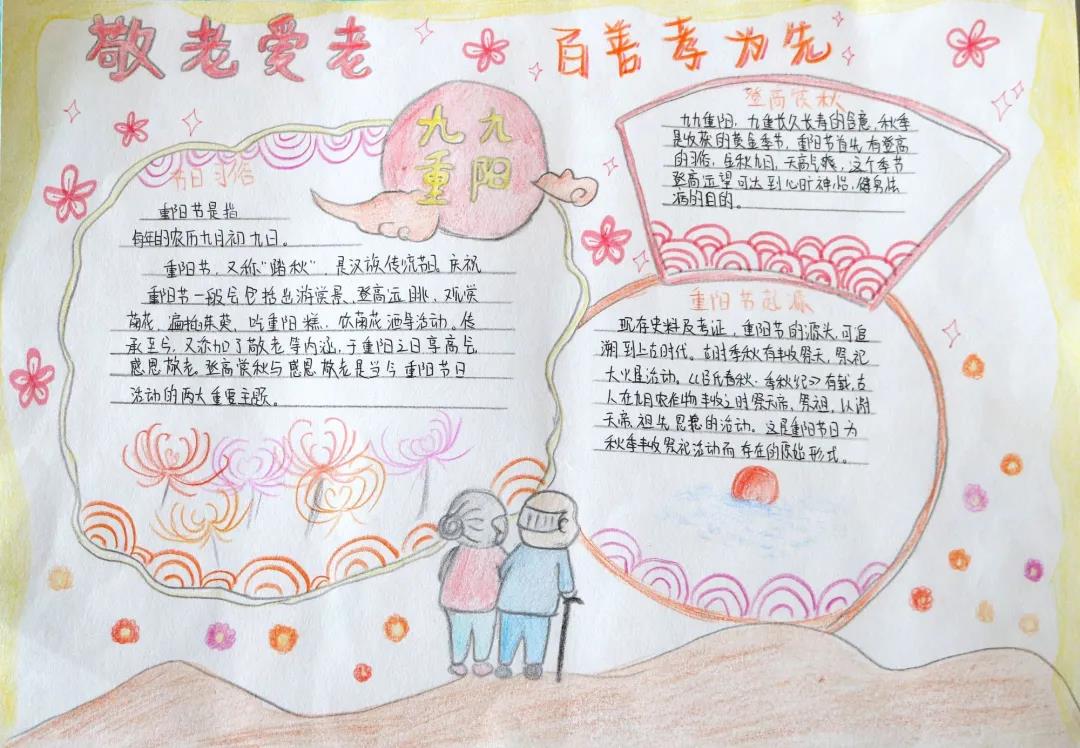 敬老爱老
百善孝为先
九九
重阳
节日习俗
重阳节是指
每年的农历九月初九日。
重阳节，又称“踏秋”，是汉族传统节日。庆祝
重阳节一般会包括出游赏景、登高远眺，观赏
菊花，遍插茱萸，吃重阳糕，饮菊花酒等活动。传
承至今，又添加了敬老等内涵，于重阳之日享高会
感恩敬老。登高赏秋与感恩敬老是当今重阳节日
活动的两大重要主题。
登高赏秋
九九重阳，九重长久长寿的含意，秋季
是收获的黄金季节，重阳节首先有登高
的习俗，金秋九月，天高气爽，这个季节
登高远望可达到心旷神怡，健身祛
病的目的。
重阳节起源
现存史料及考证，重阳节的源头，可追
溯到上古时代。古时季秋有丰收祭天，祭祀
大火星活动。《吕氏春秋·季秋纪》有载，古
人在九月农作物丰收之时祭天帝、祭祖，以谢
天帝、祖先恩德的活动。这是重阳节日为
秋季丰收祭祀活动而存在的原始形式。